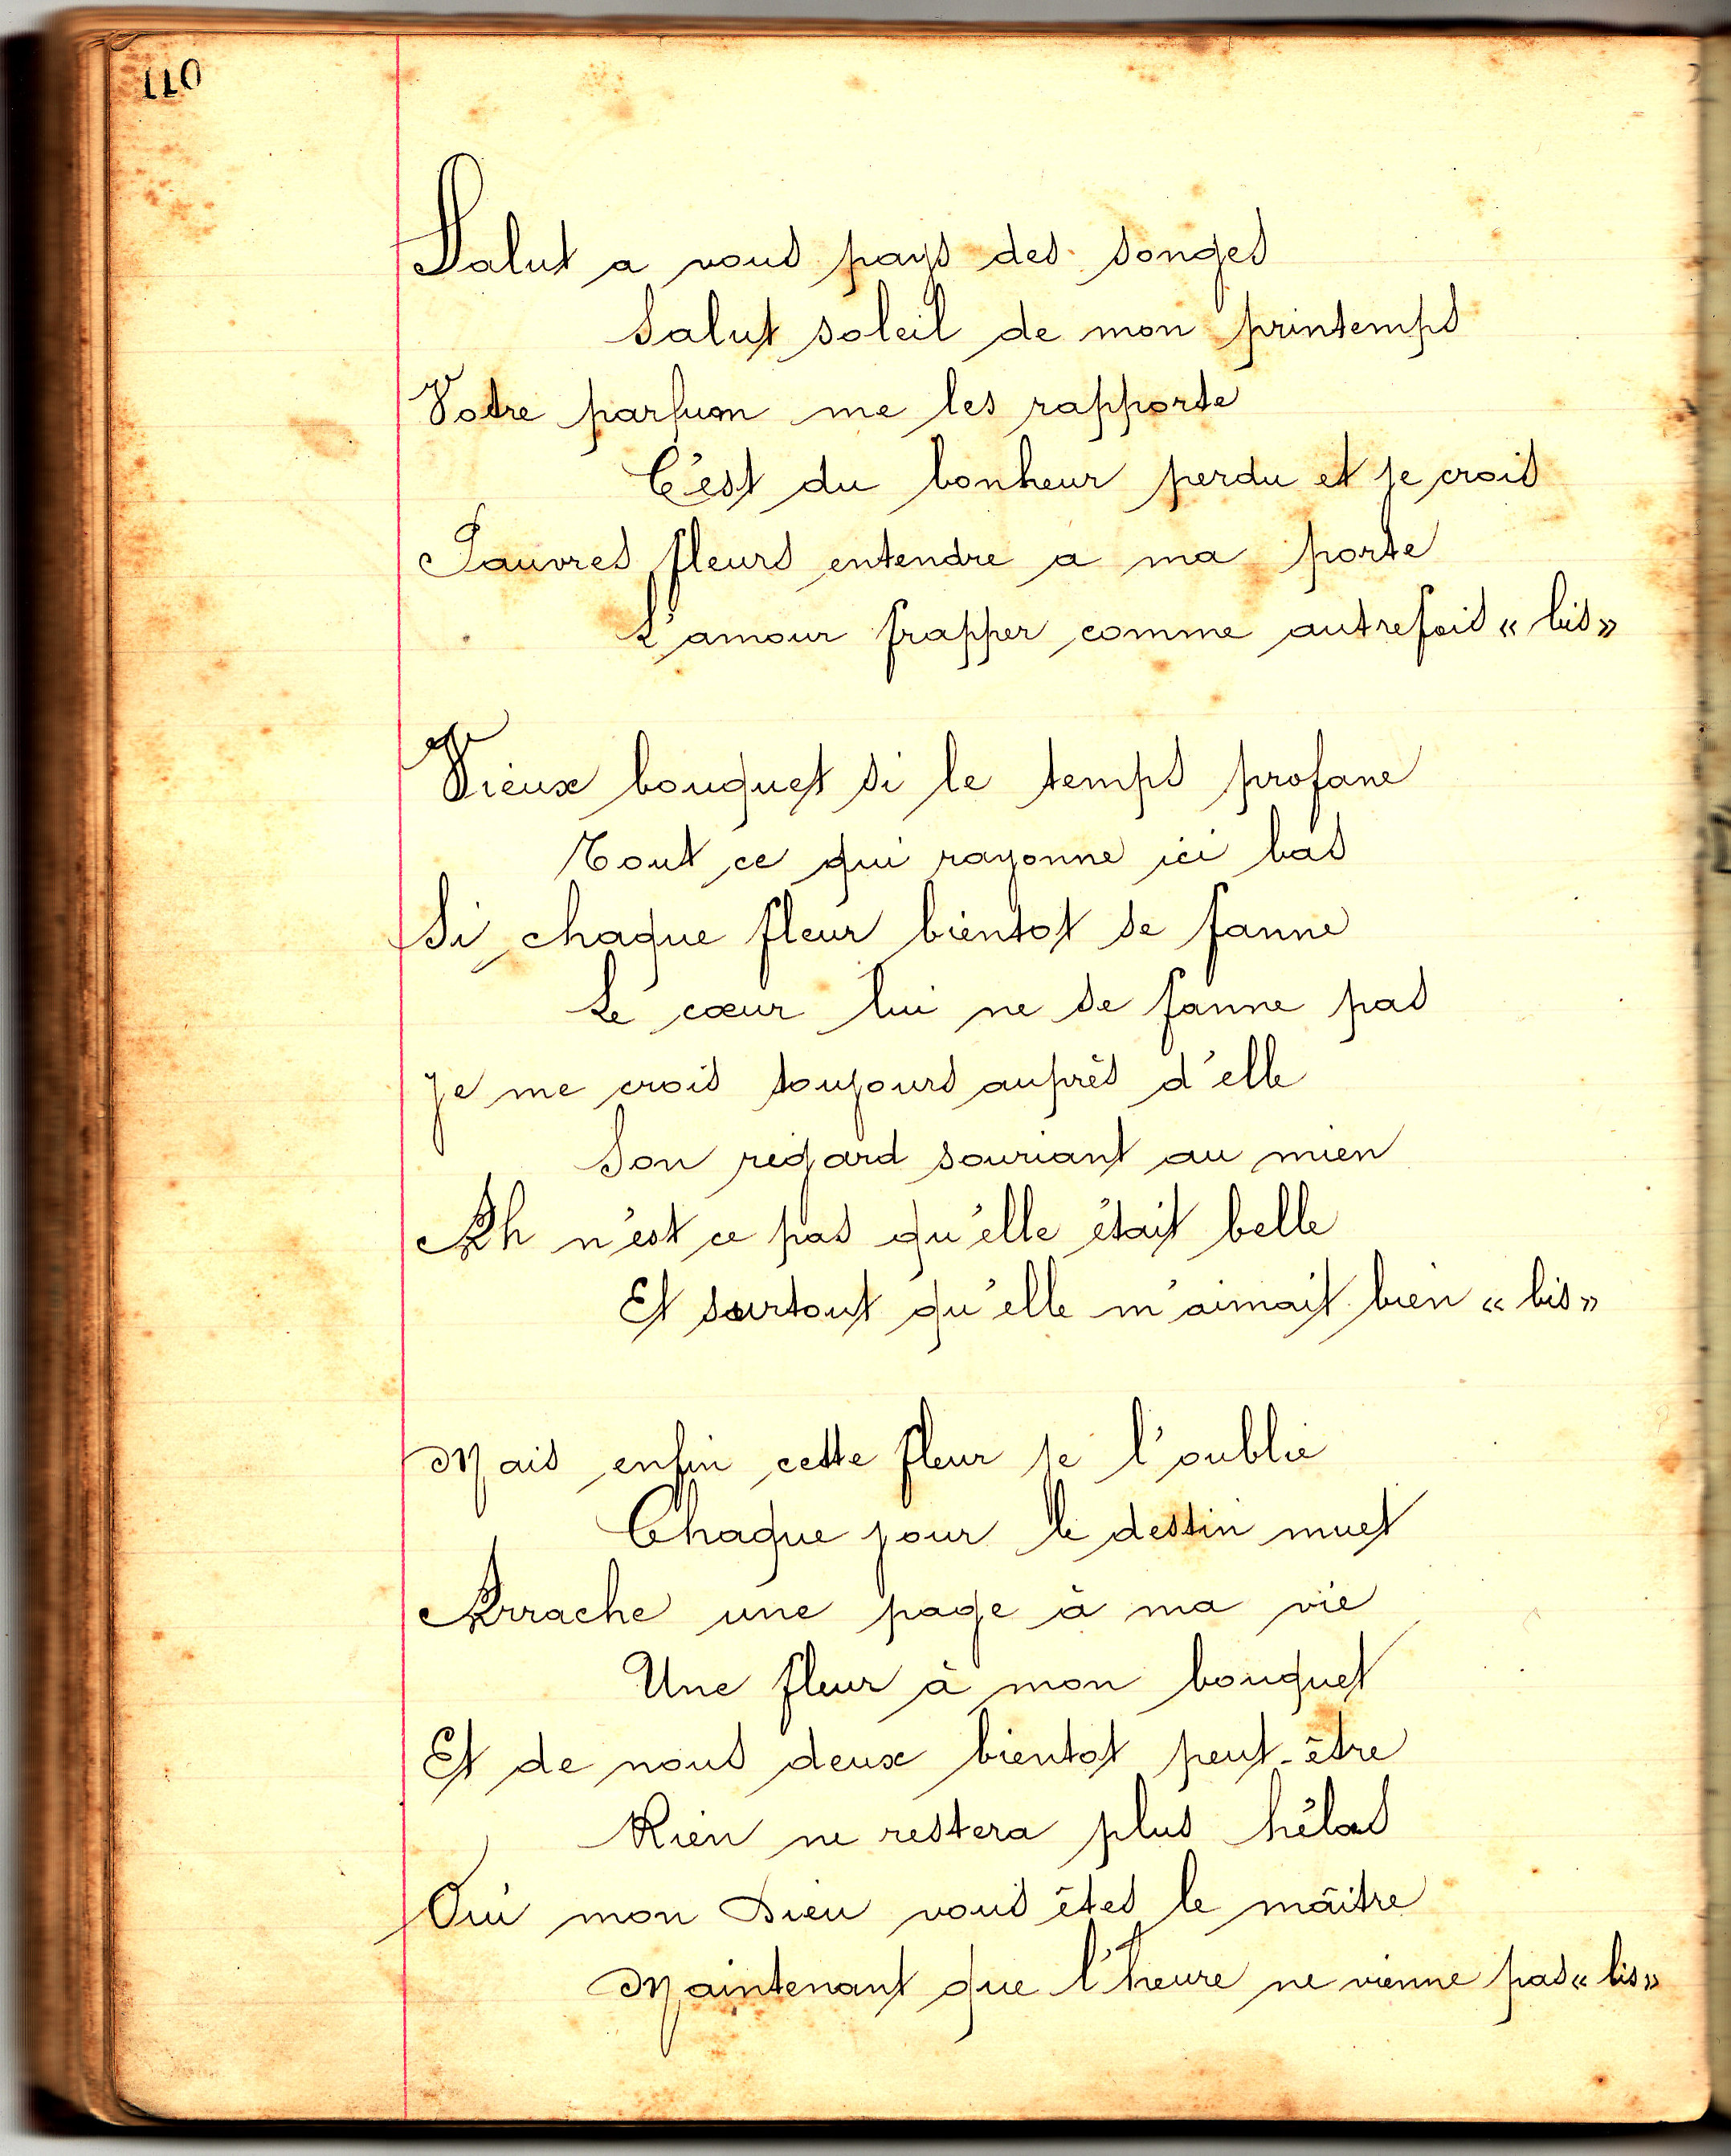 110
Salut a vous pays des songes
Salut soleil de mon printemps
Votre parfum me les rapporte
C'est du bonheur perdu et je crois
Pauvres fleurs entendre a ma porte
L'amour frapper comme autrefois « bis »
Vieux bouquet si le temps profane
Tout ce qui rayonne ici bas
Si chaque fleur bientot se fanne
Le cœur lui ne se fanne pas
Je me crois toujours auprès d'elle
Son regard souriant au mien
Ah n'est ce pas qu'elle était belle
Et surtout qu'elle m'aimait bien « bis »
Mais enfin cette fleur je l'oublie
Chaque jour le destin muet
Arrache une page à ma vie
Une fleur à mon bouquet
Et de nous deux bientot peut-être
Rien ne restera plus hélas
Oui mon Dieu vous êtes le maître
Maintenant que l'heure ne vienne pas « bis »